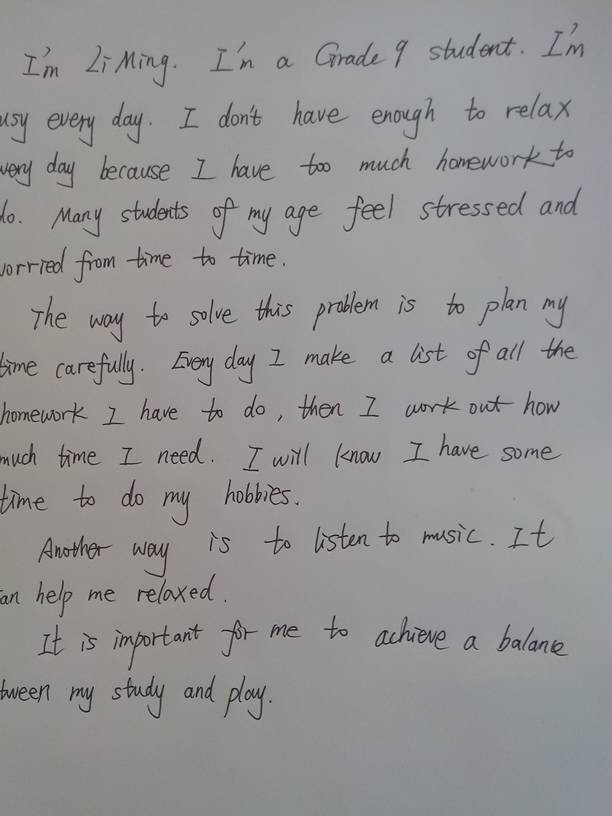 I'm Li Ming. I'm a Grade 9 student. I'm
usy every day. I don't have enough to relax
very day because I have too much homework to
do. Many students of my age feel stressed and
worried from time to time.
The way to solve this problem is to plan my
time carefully. Every day I make a list of all the
homework I have to do, then I work out how
much time I need. I will know I have some
time to do my hobbies.
Another way is to listen to music. It
an help me relaxed.
It is important for me to achieve a balance
tween my study and play.